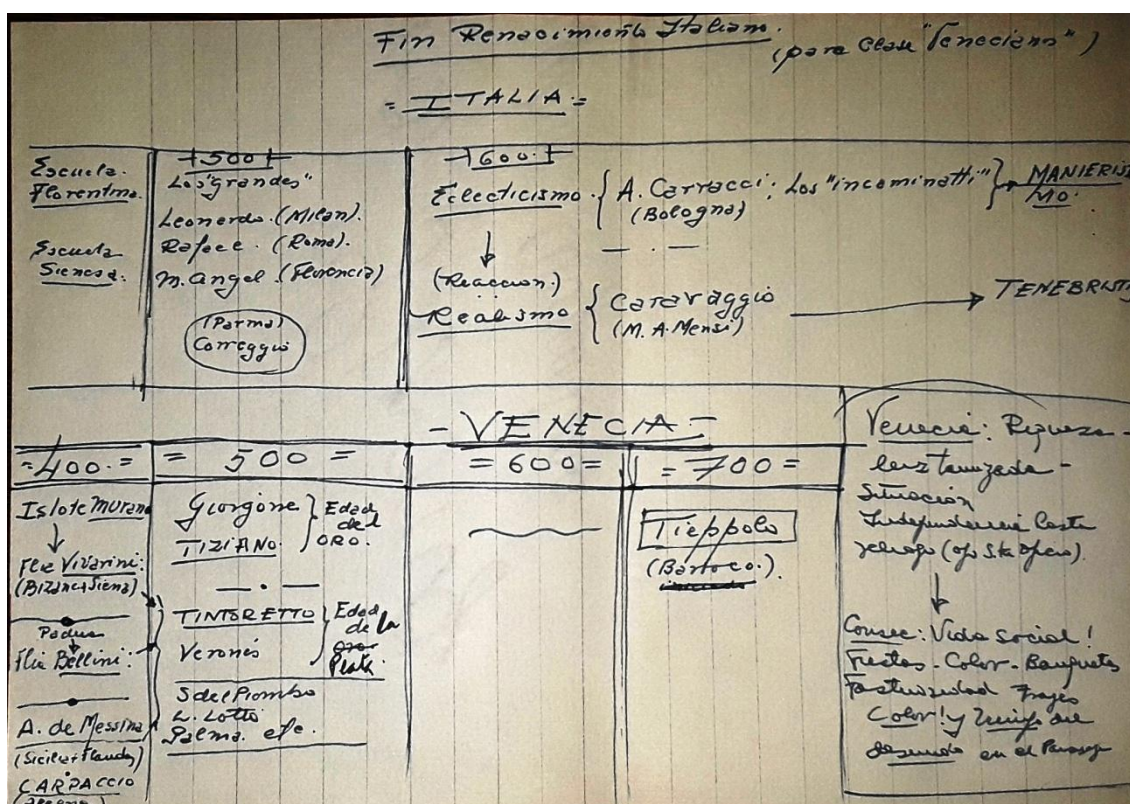 Fin Renacimiento Italiano.
(para clase "Veneciana")
= ITALIA =
Escuela.
Florentina.
Escuela
Sienesa.
500
Los "grandes"
Leonardo. (Milan).
Rafael. (Roma).
M. Angel. (Florencia)
(Parma)
Correggio
600.
Eclecticismo. { A. Carracci: Los "incominatti" } → MANIERIS
(Bologna)
MO.
(Reaccion.)
Realismo { Caravaggio → TENEBRIST
(M. A. Mensi)
- VENECIA -
=400.=
Islote Murano
Flia Vivarini:
(Bizanc+Siena)
Padua
Flia Bellini:
A. de Messina
(Sicilia+Flandes)
CARPACCIO
= 500 =
Giorgione } Edad
del
TIZIANO. ORO.
TINTORETTO } Edad
de la
Veronés Plata.
S del Piombo
L. Lotto
Palma. etc.
=600=
=700=
Tieppolo
(Barroco.)
Venecia: Riqueza -
luz tamizada -
Situación
Independencia
Consec: Vida social!
Fiestas - Color - Banquetes
Fastuosidad Trajes
Color! y del
desnudo en el